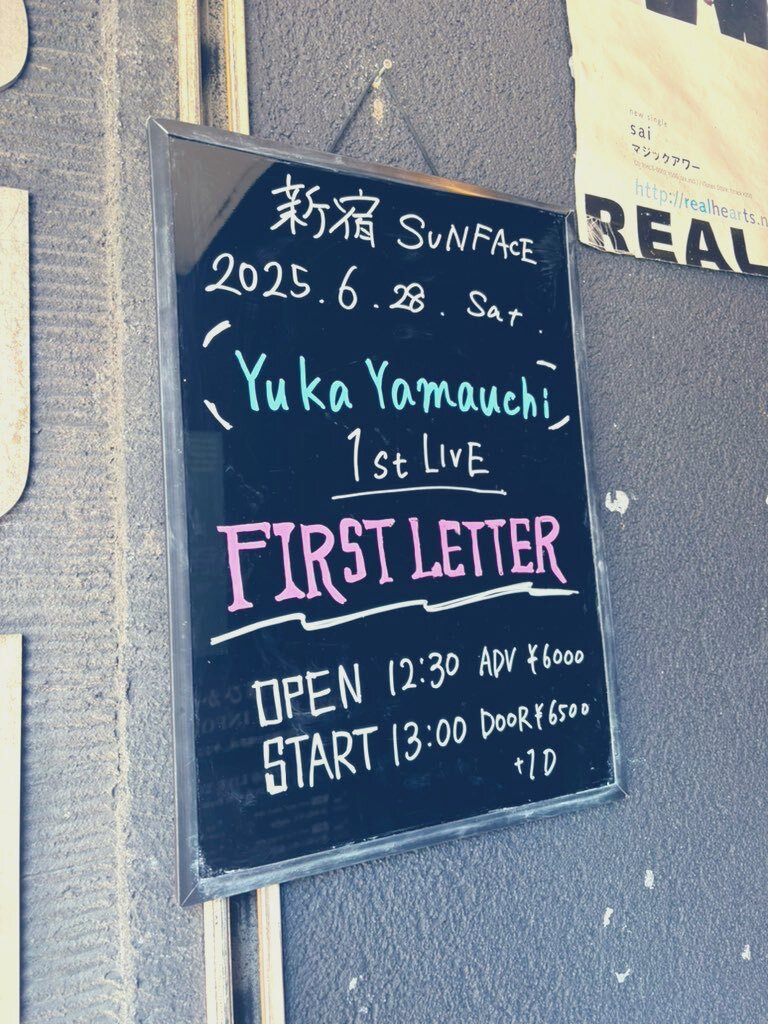 新宿 SUNFACE
2025.6.28. Sat.
Yuka Yamauchi
1st LIVE
FIRST LETTER
OPEN 12:30 ADV ¥6000
START 13:00 DOOR ¥6500
+1D
new single
sai
マジックアワー
http://realhearts.n
REAL